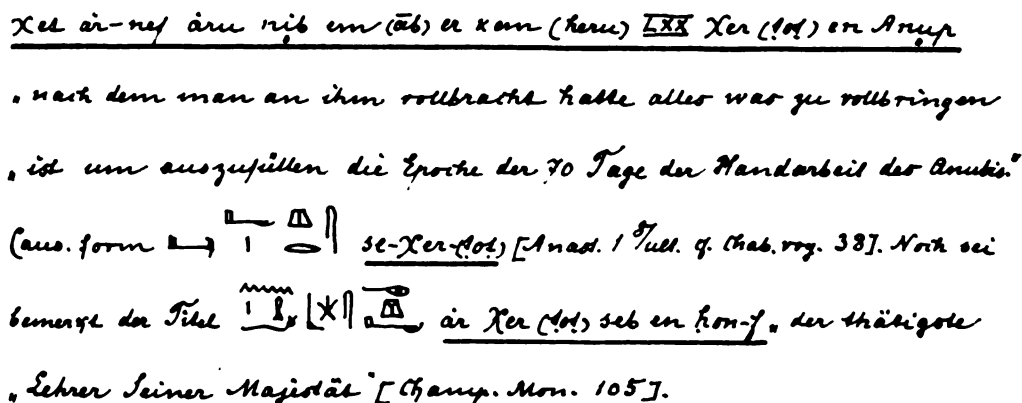 χet àr-nef àru nib em (āb) er kem (heru) LXX χer (tot) en Anup
„nach dem man an ihm vollbracht hatte alles was zu vollbringen
„ist um auszufüllen die Epoche der 70 Tage der Handarbeit des Anubis."
(aus. form se-χer-(tot) [Anast. 1 ult. q. Chab. voy. 38]. Noch sei
bemerkt der Titel àr χer (tot) seb en hon-f „der thätigste
„Lehrer Seiner Majestät" [Champ. Mon. 105].